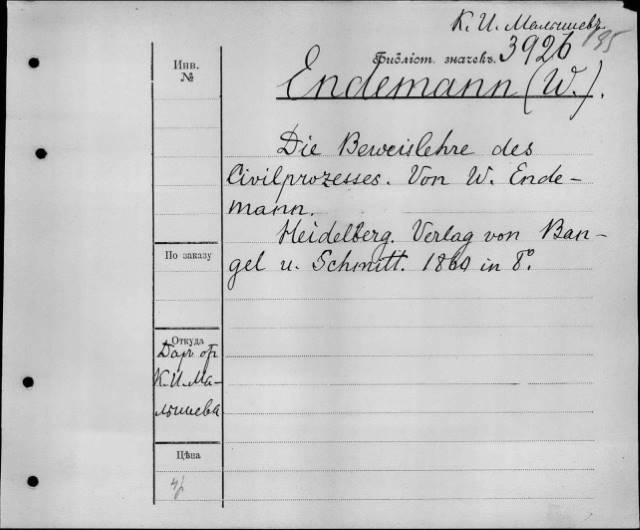 К. И. Малышевъ.
195
Библіот. значекъ. 3926
Endemann (W.).
Инв.
№
Die Beweislehre des
Civilprozesses. Von W. Ende-
mann.
Heidelberg. Verlag von Ban-
gel u. Schmitt. 1860 in 8°.
По заказу
Откуда
Даръ
К. И. Ма-
лышева
Цѣна